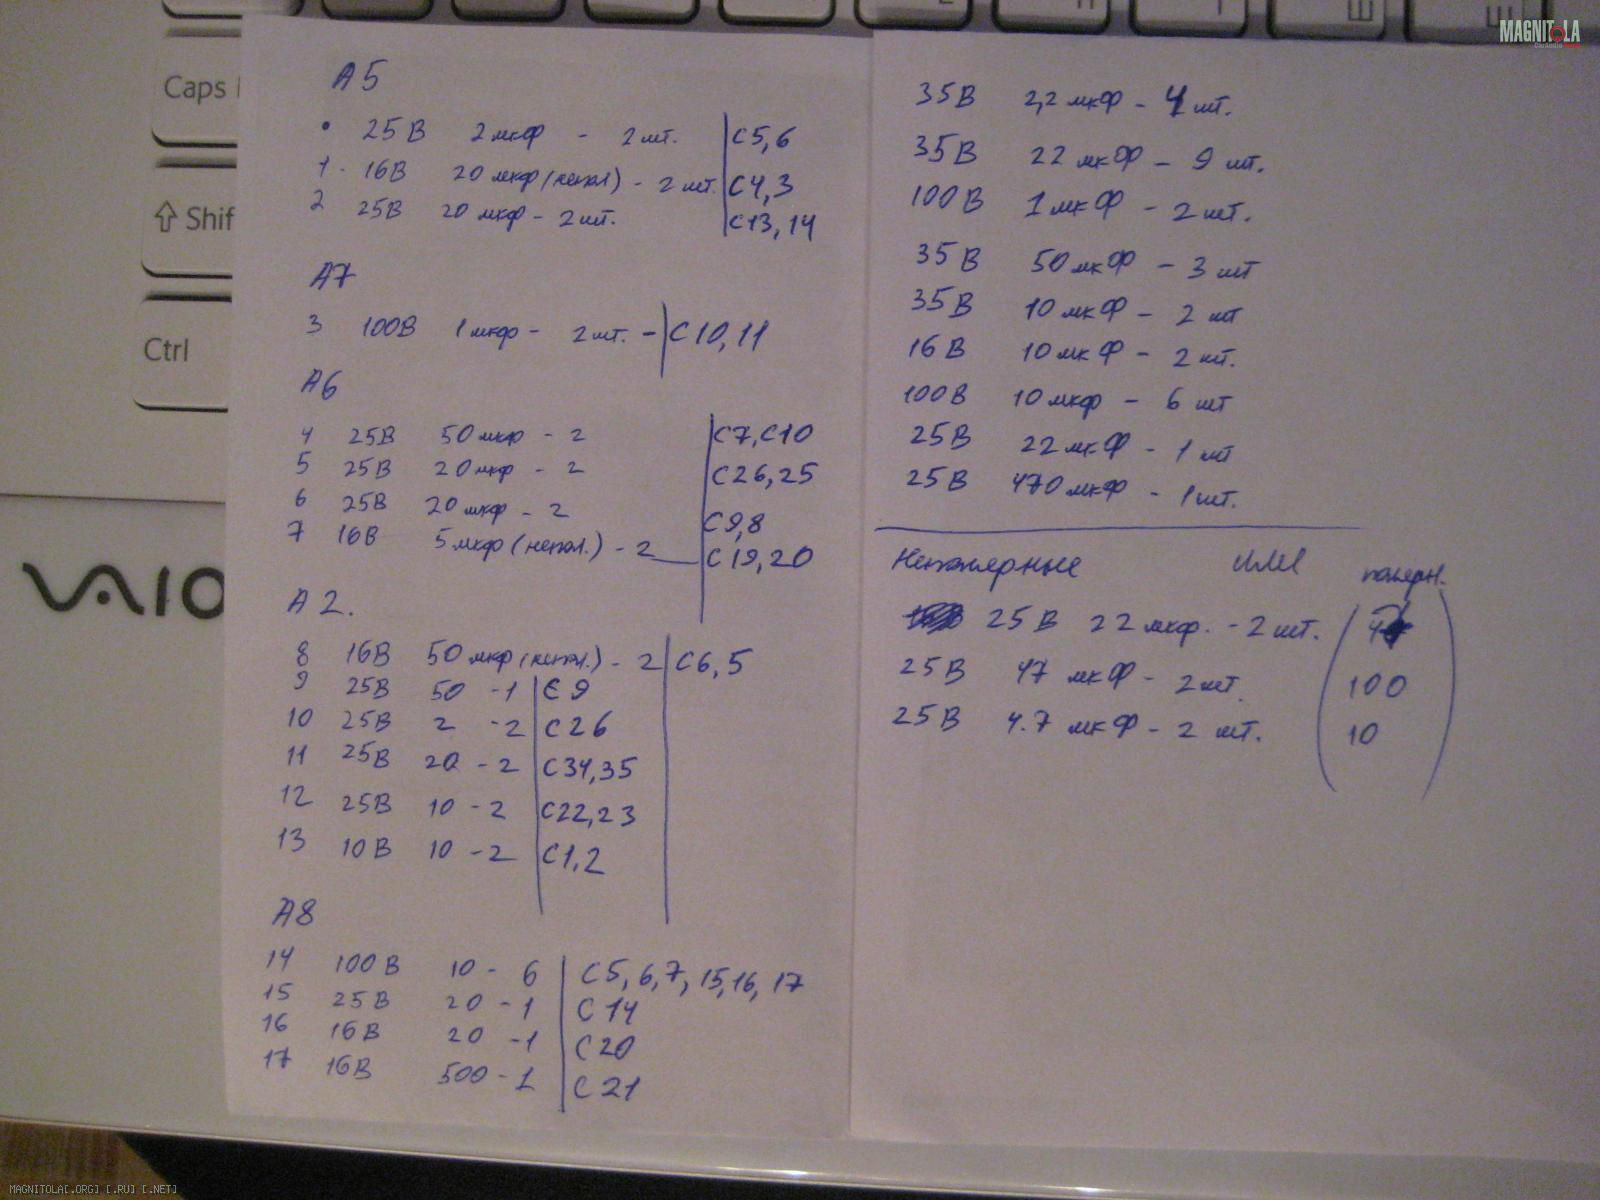 MAGNITOLA
Caps
Shif
Ctrl
VAIO
А5
• 25В 2мкф - 2шт. С5,6
1. 16В 20мкф(непол) - 2шт. С4,3
2 25В 20мкф - 2шт. С13,14
А7
3 100В 1мкф - 2шт. - С10,11
А6
4 25В 50мкф - 2 С7,С10
5 25В 20мкф - 2 С26,25
6 25В 20мкф - 2 С9,8
7 16В 5мкф(непол.) - 2 С19,20
А2.
8 16В 50мкф(непол.) - 2 С6,5
9 25В 50 -1 С9
10 25В 2 -2 С26
11 25В 20 -2 С34,35
12 25В 10 -2 С22,23
13 10В 10 -2 С1,2
А8
14 100В 10 - 6 С5,6,7,15,16,17
15 25В 20 -1 С14
16 16В 20 -1 С20
17 16В 500 -1 С21
35В 2,2мкФ - 4шт.
35В 22мкФ - 9шт.
100В 1мкФ - 2шт.
35В 50мкФ - 3шт
35В 10мкФ - 2шт
16В 10мкФ - 2шт.
100В 10мкф - 6шт
25В 22мкФ - 1шт
25В 470мкФ - 1шт.
Неполярные или полярн.
25В 22мкф. - 2шт.
25В 47мкФ - 2шт. 100
25В 4.7мкФ - 2шт. 10
MAGNITOLA[.ORG] [.RU] [.NET]